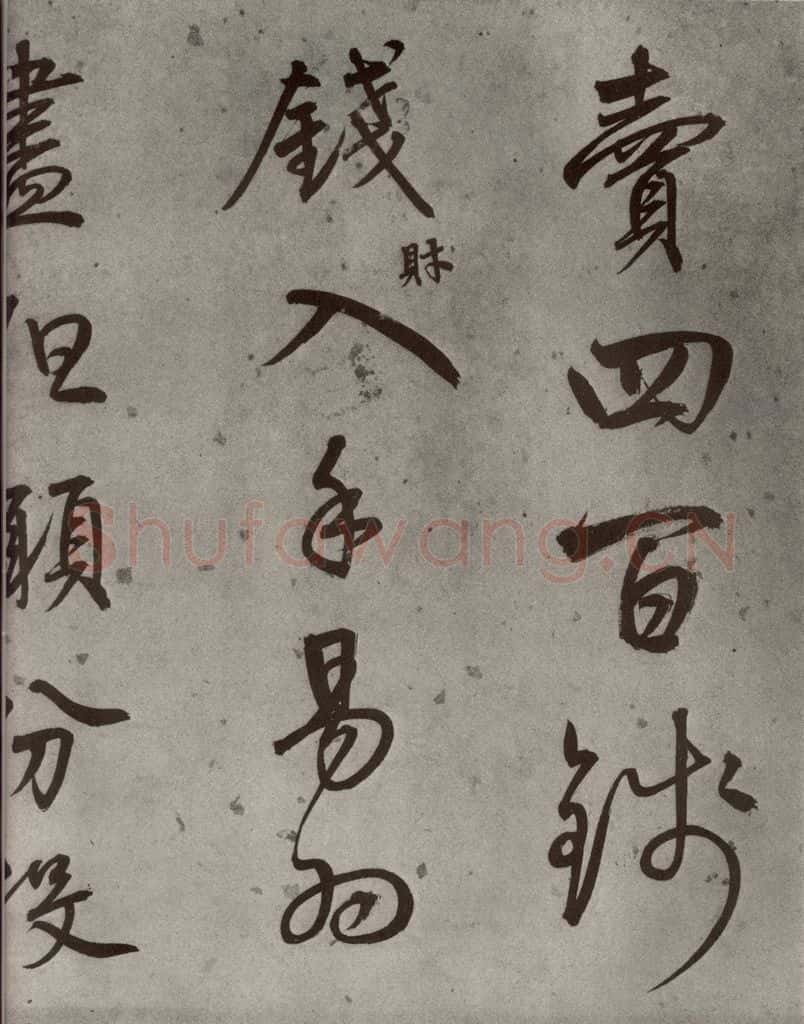 賣四百錢
錢財入手易為
盡但願分
Shufawang.CN